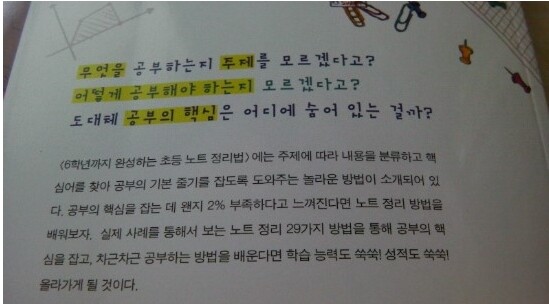 무엇을 공부하는지 주제를 모르겠다고?
어떻게 공부해야 하는지 모르겠다고?
도대체 공부의 핵심은 어디에 숨어 있는 걸까?
〈6학년까지 완성하는 초등 노트 정리법〉에는 주제에 따라 내용을 분류하고 핵
심어를 찾아 공부의 기본 줄기를 잡도록 도와주는 놀라운 방법이 소개되어 있
다. 공부의 핵심을 잡는 데 왠지 2% 부족하다고 느껴진다면 노트 정리 방법을
배워보자. 실제 사례를 통해서 보는 노트 정리 29가지 방법을 통해 공부의 핵
심을 잡고, 차근차근 공부하는 방법을 배운다면 학습 능력도 쑥쑥! 성적도 쑥쑥!
올라가게 될 것이다.